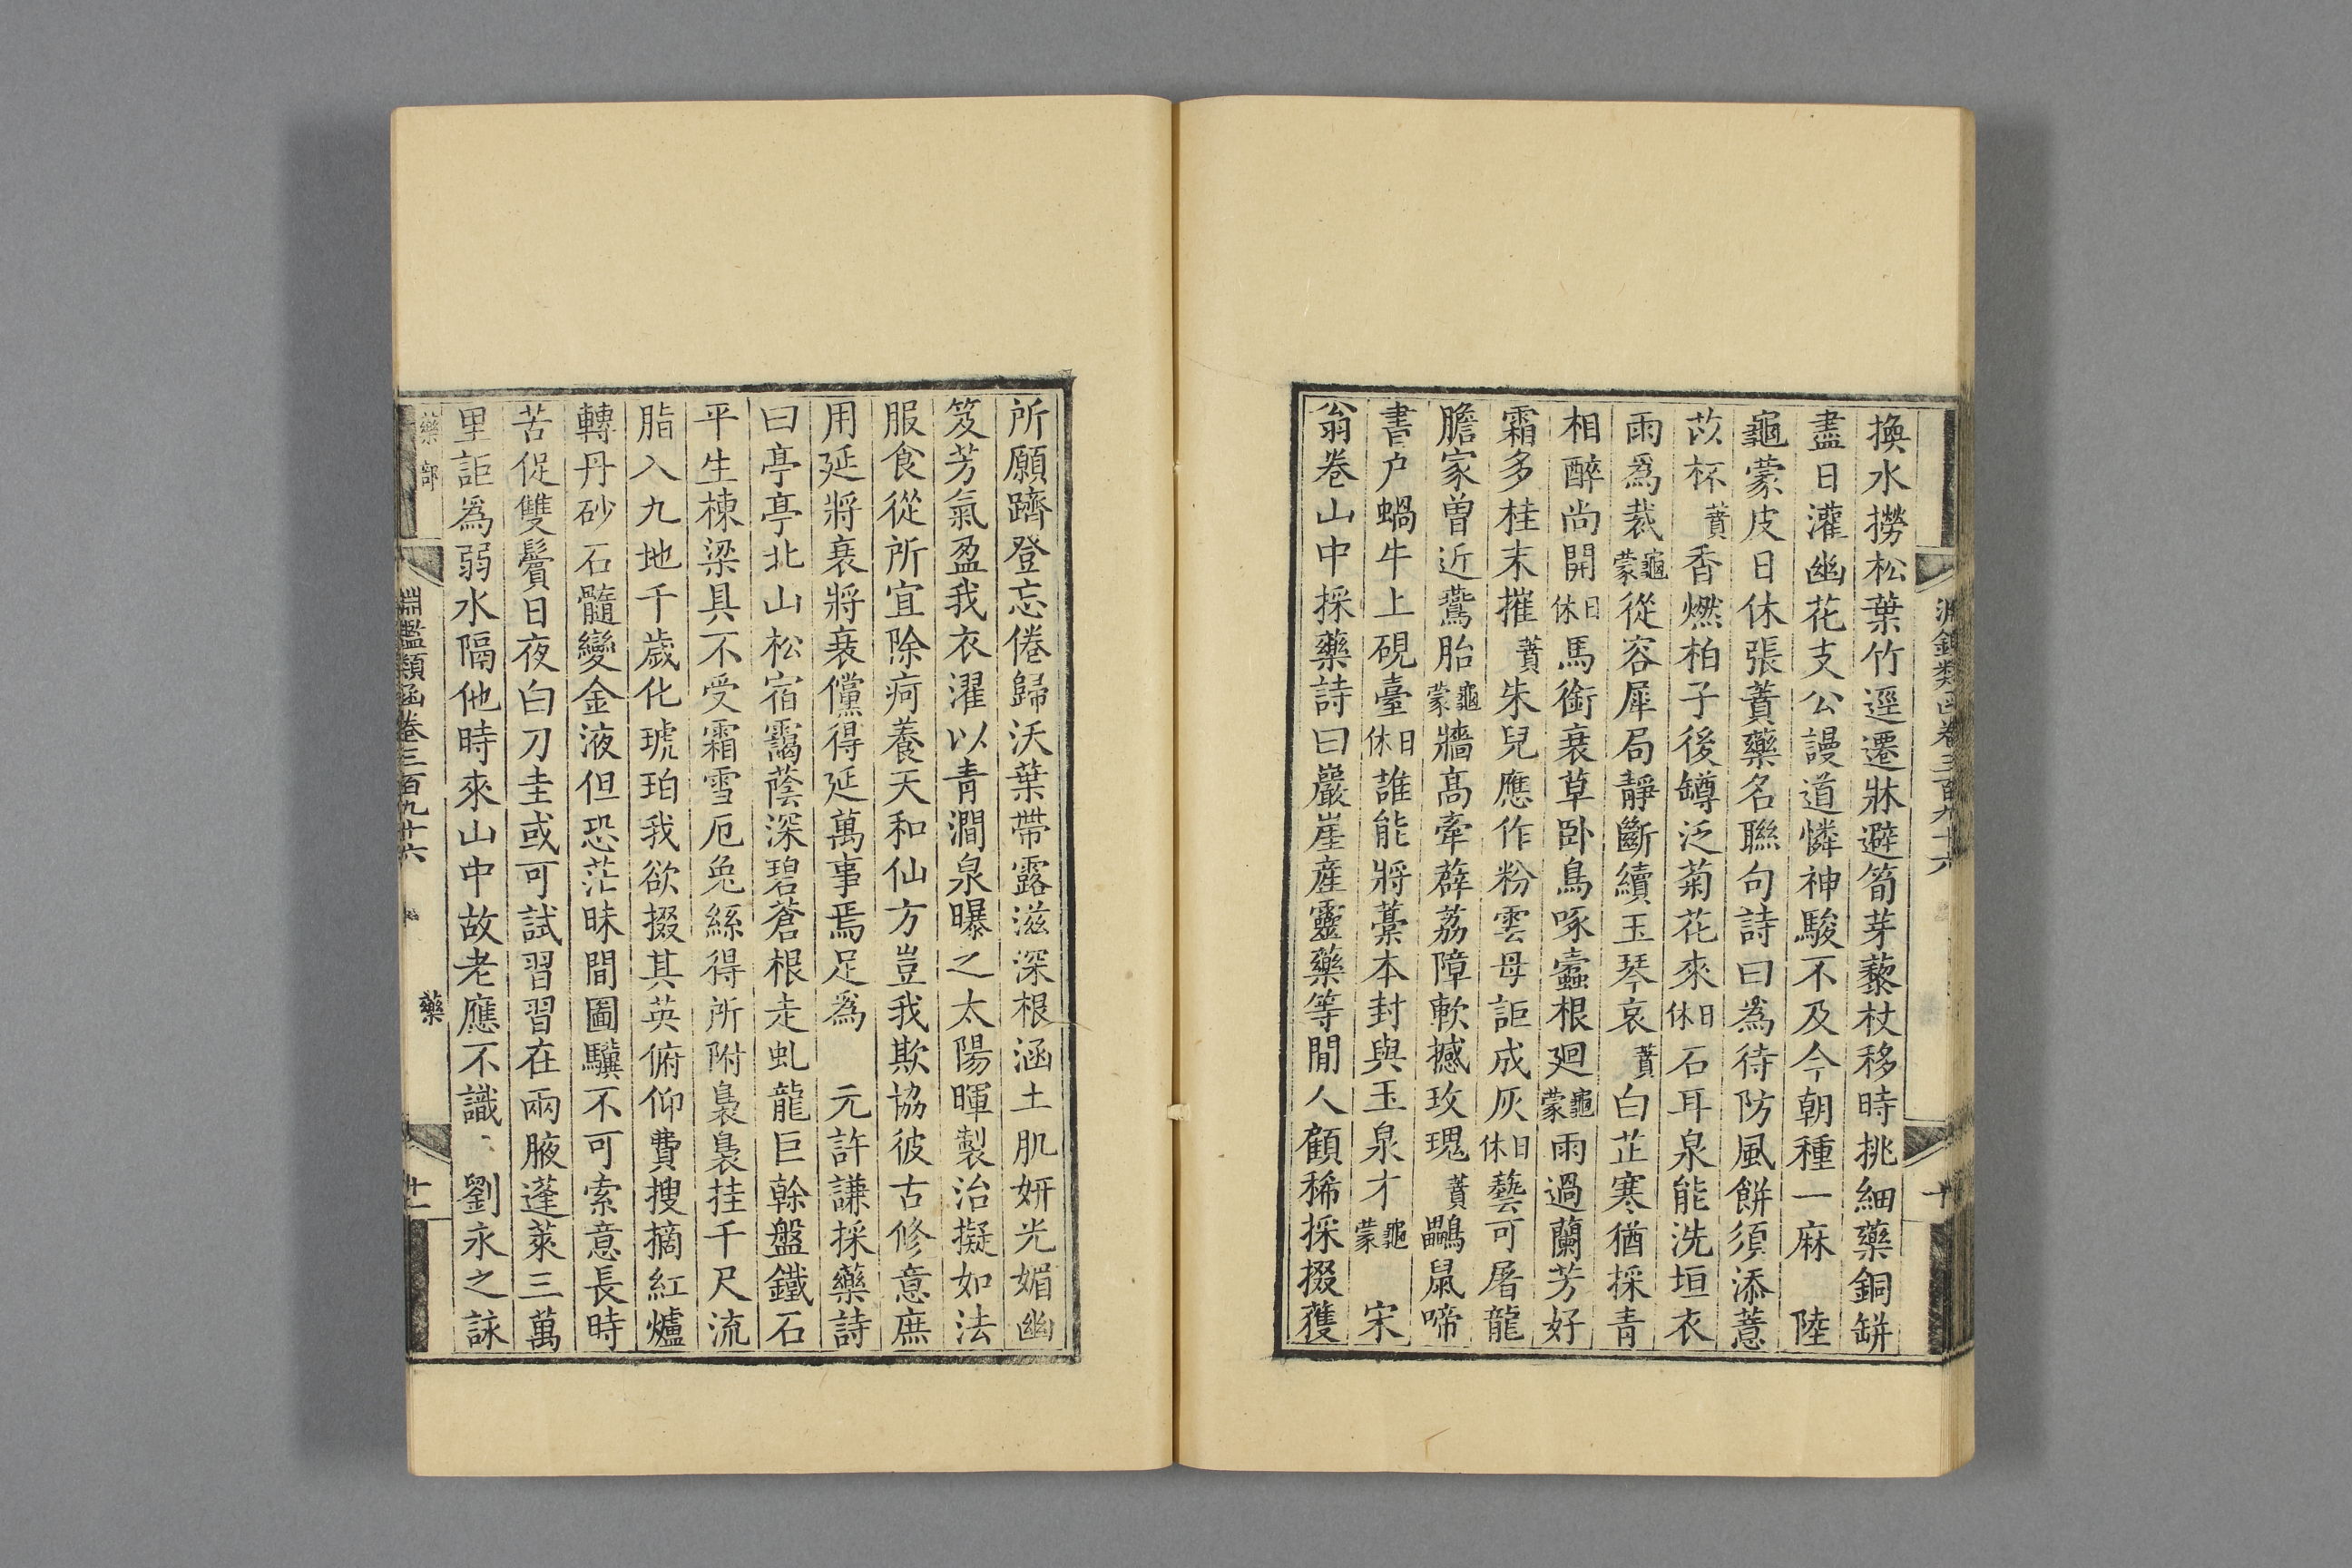 淵鑑類函卷三百九十六
十
換水撈松葉竹逕遷牀避筍芽藜杖移時挑細藥銅缾
盡日灌幽花支公謾道憐神駿不及今朝種一麻　陸
龜蒙皮日休張蕡藥名聯句詩曰為待防風餅須添薏
苡杯蕡香燃柏子後罇泛菊花來日休石耳泉能洗垣衣
雨為裁龜蒙從容犀局靜斷續玉琴哀蕡白芷寒猶採青
相醉尚開日休馬銜衰草卧鳥啄蠹根廻龜蒙雨過蘭芳好
霜多桂末摧蕡朱兒應作粉雲母詎成灰日休藝可屠龍
膽家曾近鷰胎龜蒙牆高牽薜荔障軟撼玫瑰蕡鸓鼠啼
書户蝸牛上硯臺日休誰能將藁本封與玉泉才龜蒙　宋
翁卷山中採藥詩曰巖崖産靈藥等閒人顧稀採掇獲
所願躋登忘倦歸沃葉帶露滋深根涵土肌妍光媚幽
笈芳氣盈我衣濯以青澗泉曝之太陽暉製治擬如法
服食從所宜除疴養天和仙方豈我欺協彼古修意庶
用延將衰將衰儻得延萬事焉足為　元許謙採藥詩
曰亭亭北山松宿靄蔭深碧蒼根走虬龍巨榦盤鐵石
平生棟梁具不受霜雪厄兔絲得所附裊裊挂千尺流
脂入九地千歲化琥珀我欲掇其英俯仰費搜摘紅爐
轉丹砂石髓變金液但恐茫昧間圖驥不可索意長時
苦促雙鬢日夜白刀圭或可試習習在兩腋蓬萊三萬
里詎為弱水隔他時來山中故老應不識　劉永之詠
藥部
淵鑑類函卷三百九十六
藥
十一